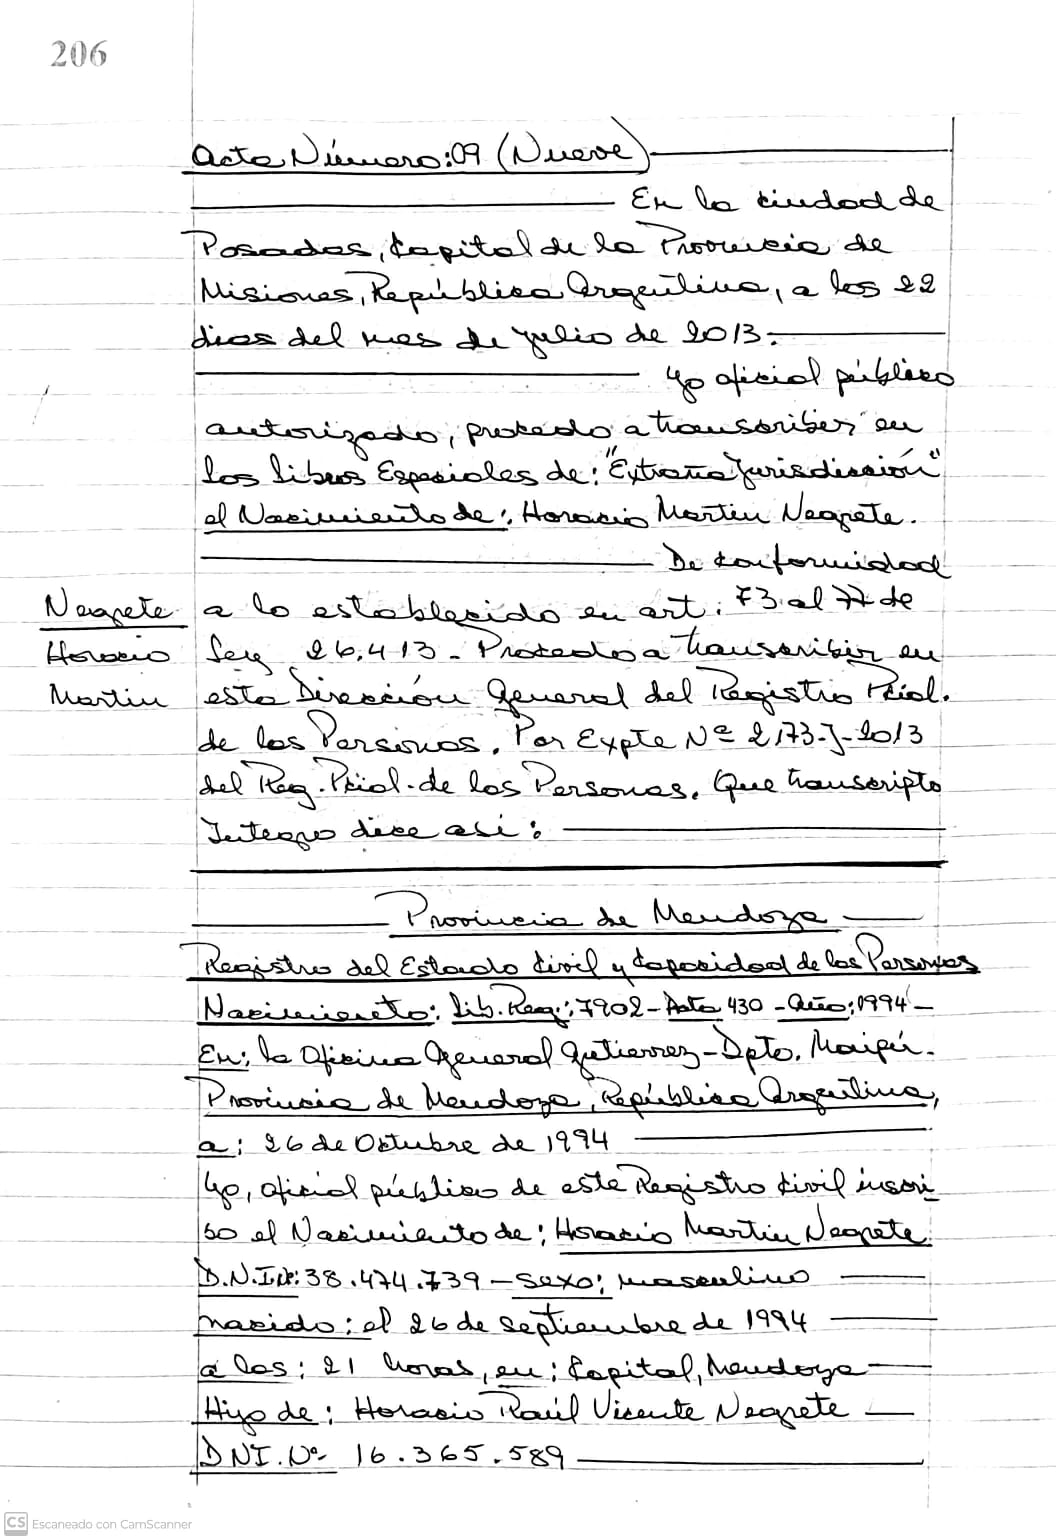 206
Acta Número: 09 (Nueve)
En la ciudad de
Posadas, Capital de la Provincia de
Misiones, República Argentina, a los 22
dias del mes de julio de 2013.
Yo oficial público
autorizado, procedo a transcribir en
los libros Especiales de: "Extraña Jurisdicción"
el Nacimiento de: Horacio Martin Negrete.
De conformidad
Negrete
Horacio
Martin
a lo establecido en art: 73 al 77 de
Ley 26.413 - Procedo a transcribir en
esta Dirección General del Registro Pcial.
de las Personas. Por Expte Nº 2173-J-2013
del Reg. Pcial. de las Personas. Que transcripto
Integro dice asi:
Provincia de Mendoza
Registro del Estado Civil y Capacidad de las Personas
Nacimiento: Lib. Reg.: 7902 - Acta 430 - Año: 1994 -
En: la Oficina General Gutierrez - Dpto. Maipú -
Provincia de Mendoza, República Argentina,
a: 26 de Octubre de 1994
Yo, oficial público de este Registro Civil inscri
bo el Nacimiento de: Horacio Martin Negrete
D.N.I Nº: 38.474.739 - Sexo: masculino
nacido: el 26 de Septiembre de 1994
a las: 21 horas, en: Capital, Mendoza
Hijo de: Horacio Raúl Vicente Negrete
DNI. Nº 16.365.589
CS Escaneado con CamScanner